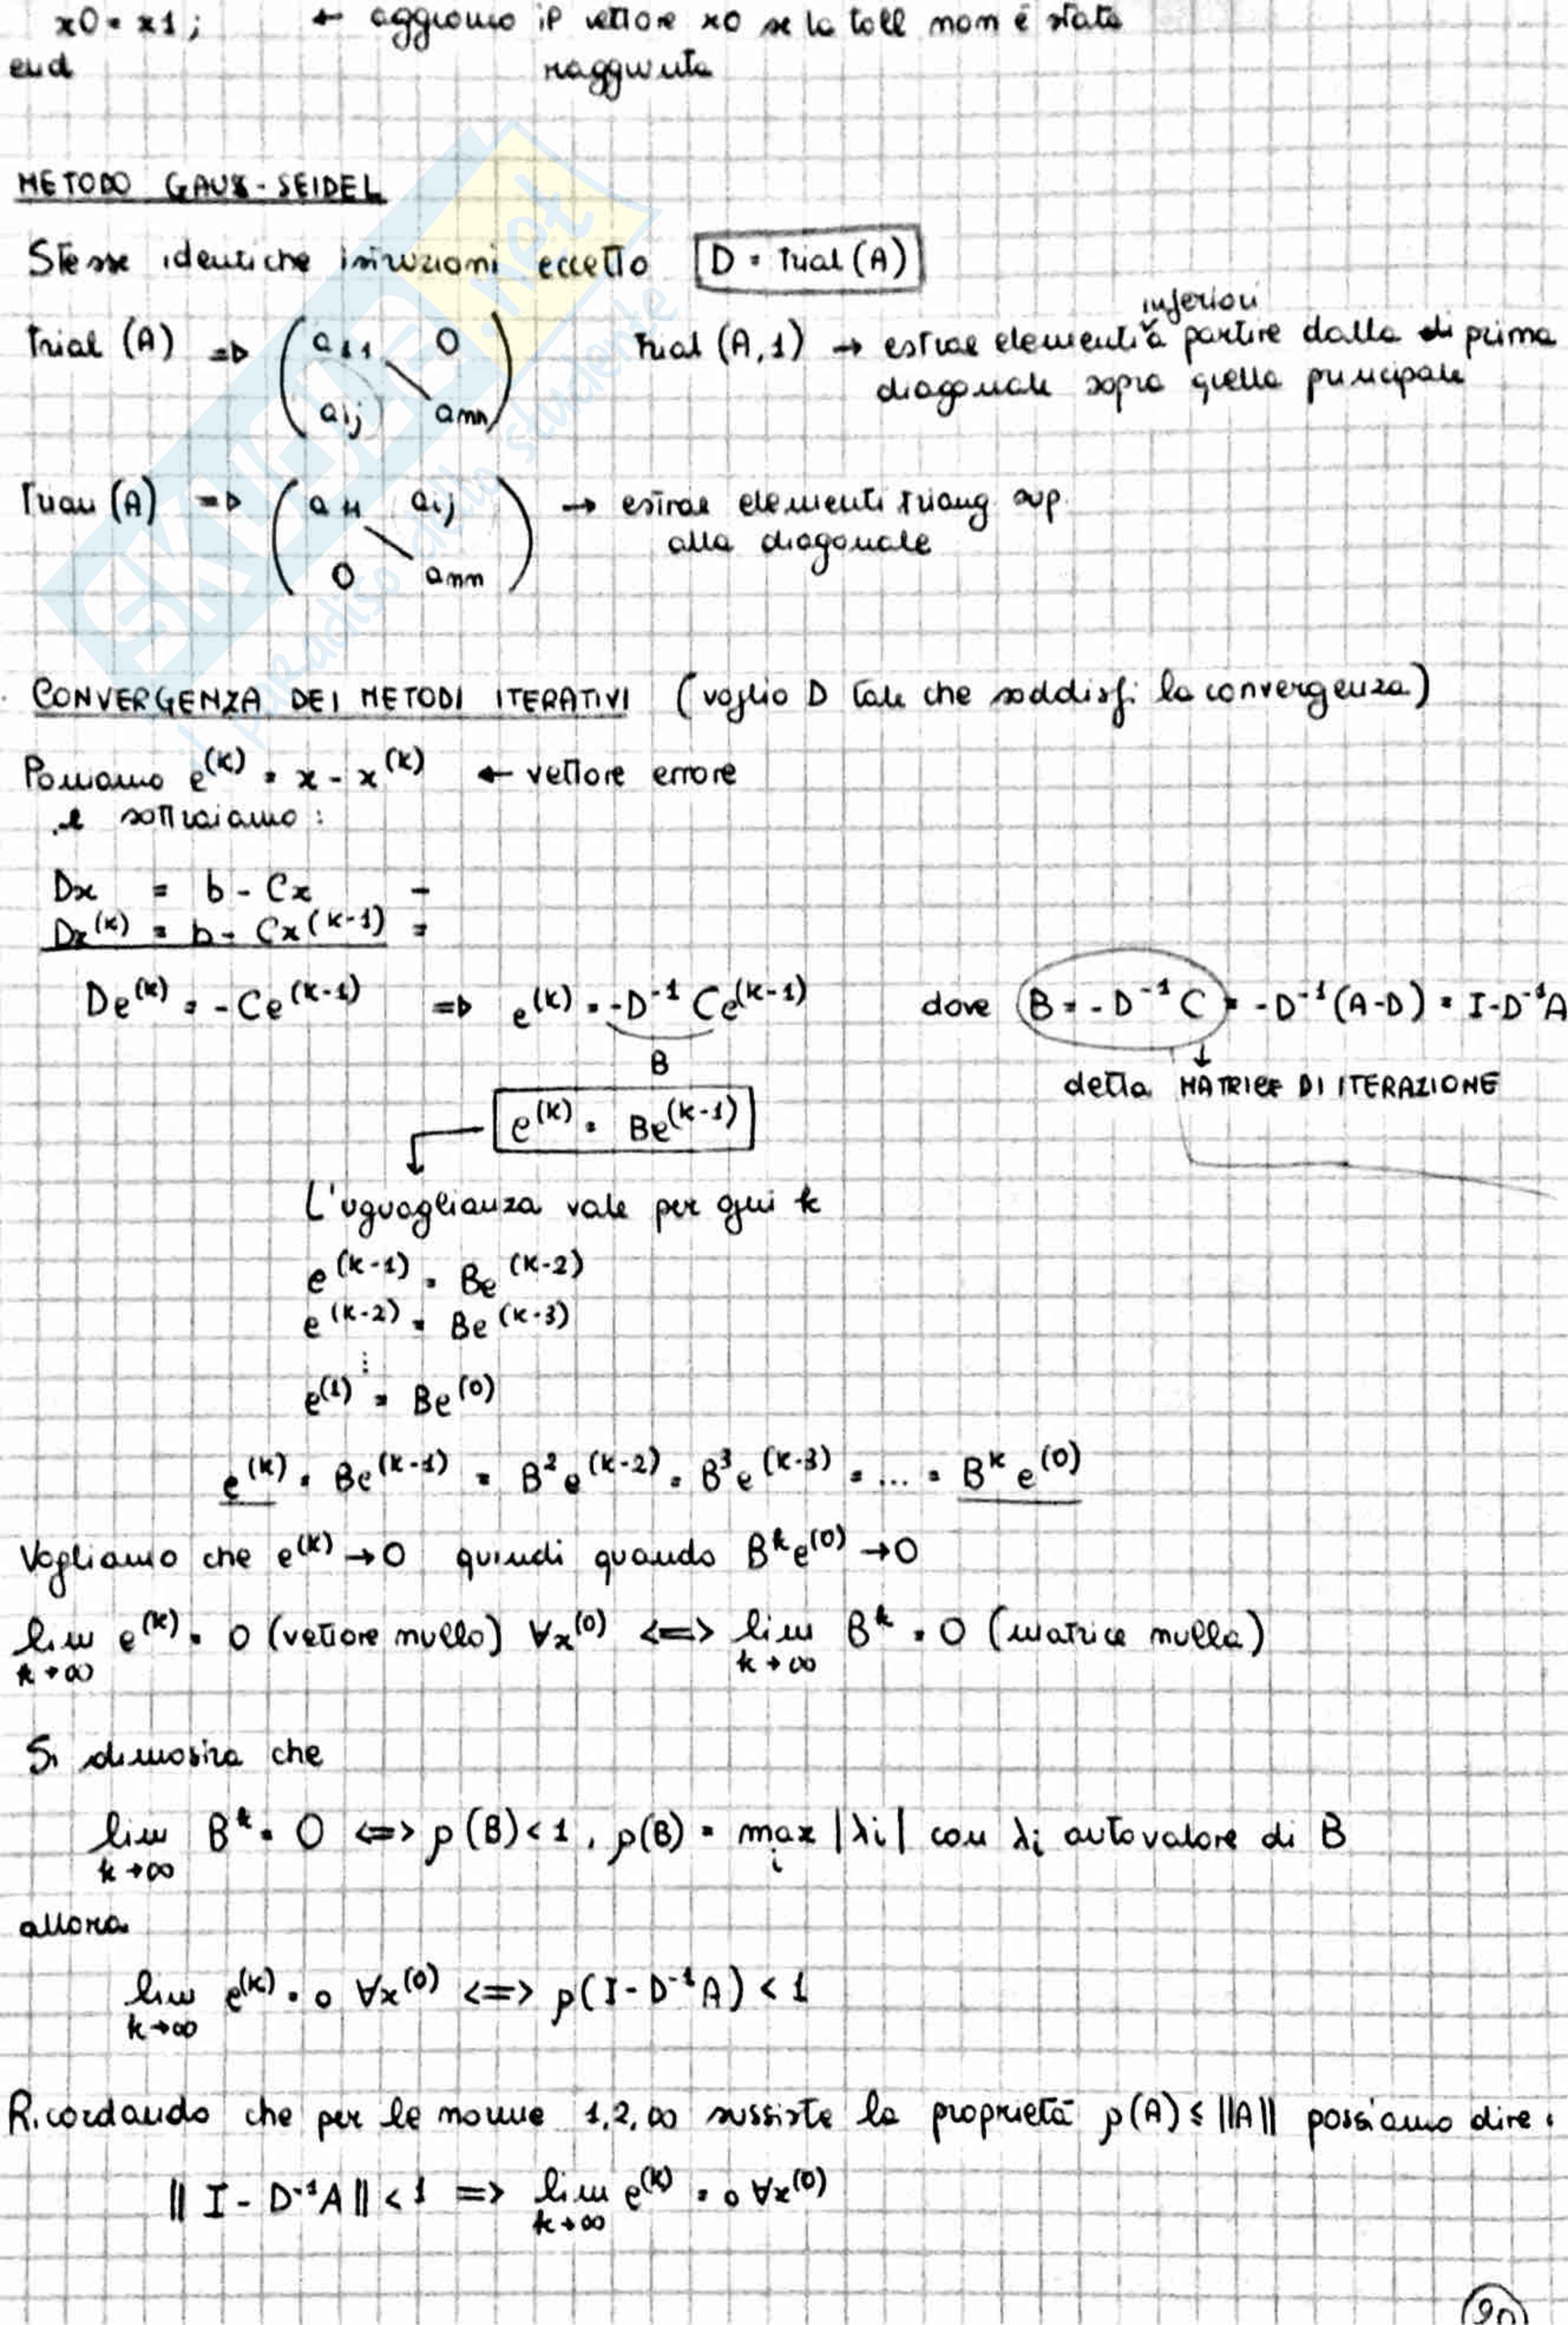 x0 = x1;    ← aggiorno il vettore x0 se la toll non è stata
end    raggiunta
METODO GAUSS-SEIDEL
Stesse identiche istruzioni eccetto D = trial(A)
trial (A) ⇒ ( a11 0 aij ann )    trial (A,1) → estrae elementi inferiori a partire dalla prima
diagonale sopra quella principale
Triau (A) ⇒ ( a11 aij 0 ann ) → estrae elementi triang sup.
alla diagonale
CONVERGENZA DEI METODI ITERATIVI (voglio D tale che soddisfi la convergenza)
Poniamo e^(k) = x - x^(k) ← vettore errore
e sottraiamo:
Dx = b - Cx -
Dx^(k) = b - Cx^(k-1) =
De^(k) = -Ce^(k-1) ⇒ e^(k) = -D^-1 Ce^(k-1)    dove B = -D^-1 C = -D^-1(A-D) = I-D^-1A
B    ↓
detta MATRICE DI ITERAZIONE
e^(k) = Be^(k-1)
L'uguaglianza vale per ogni k
e^(k-1) = Be^(k-2)
e^(k-2) = Be^(k-3)
⋮
e^(1) = Be^(0)
e^(k) = Be^(k-1) = B^2 e^(k-2) = B^3 e^(k-3) = ... = B^k e^(0)
Vogliamo che e^(k) → 0 quindi quando B^k e^(0) → 0
lim e^(k) = 0 (vettore nullo) ∀x^(0) <=> lim B^k = 0 (matrice nulla)
k→∞    k→∞
Si dimostra che
lim B^k = 0 <=> ρ(B) < 1, ρ(B) = max |λi| con λi autovalore di B
k→∞    i
allora
lim e^(k) = 0 ∀x^(0) <=> ρ(I-D^-1A) < 1
k→∞
Ricordando che per le norme 1,2,∞ sussiste la proprietà ρ(A) ≤ ||A|| possiamo dire:
|| I - D^-1A || < 1 => lim e^(k) = 0 ∀x^(0)
k→∞
SKUOLA.net
il paradiso dello studente